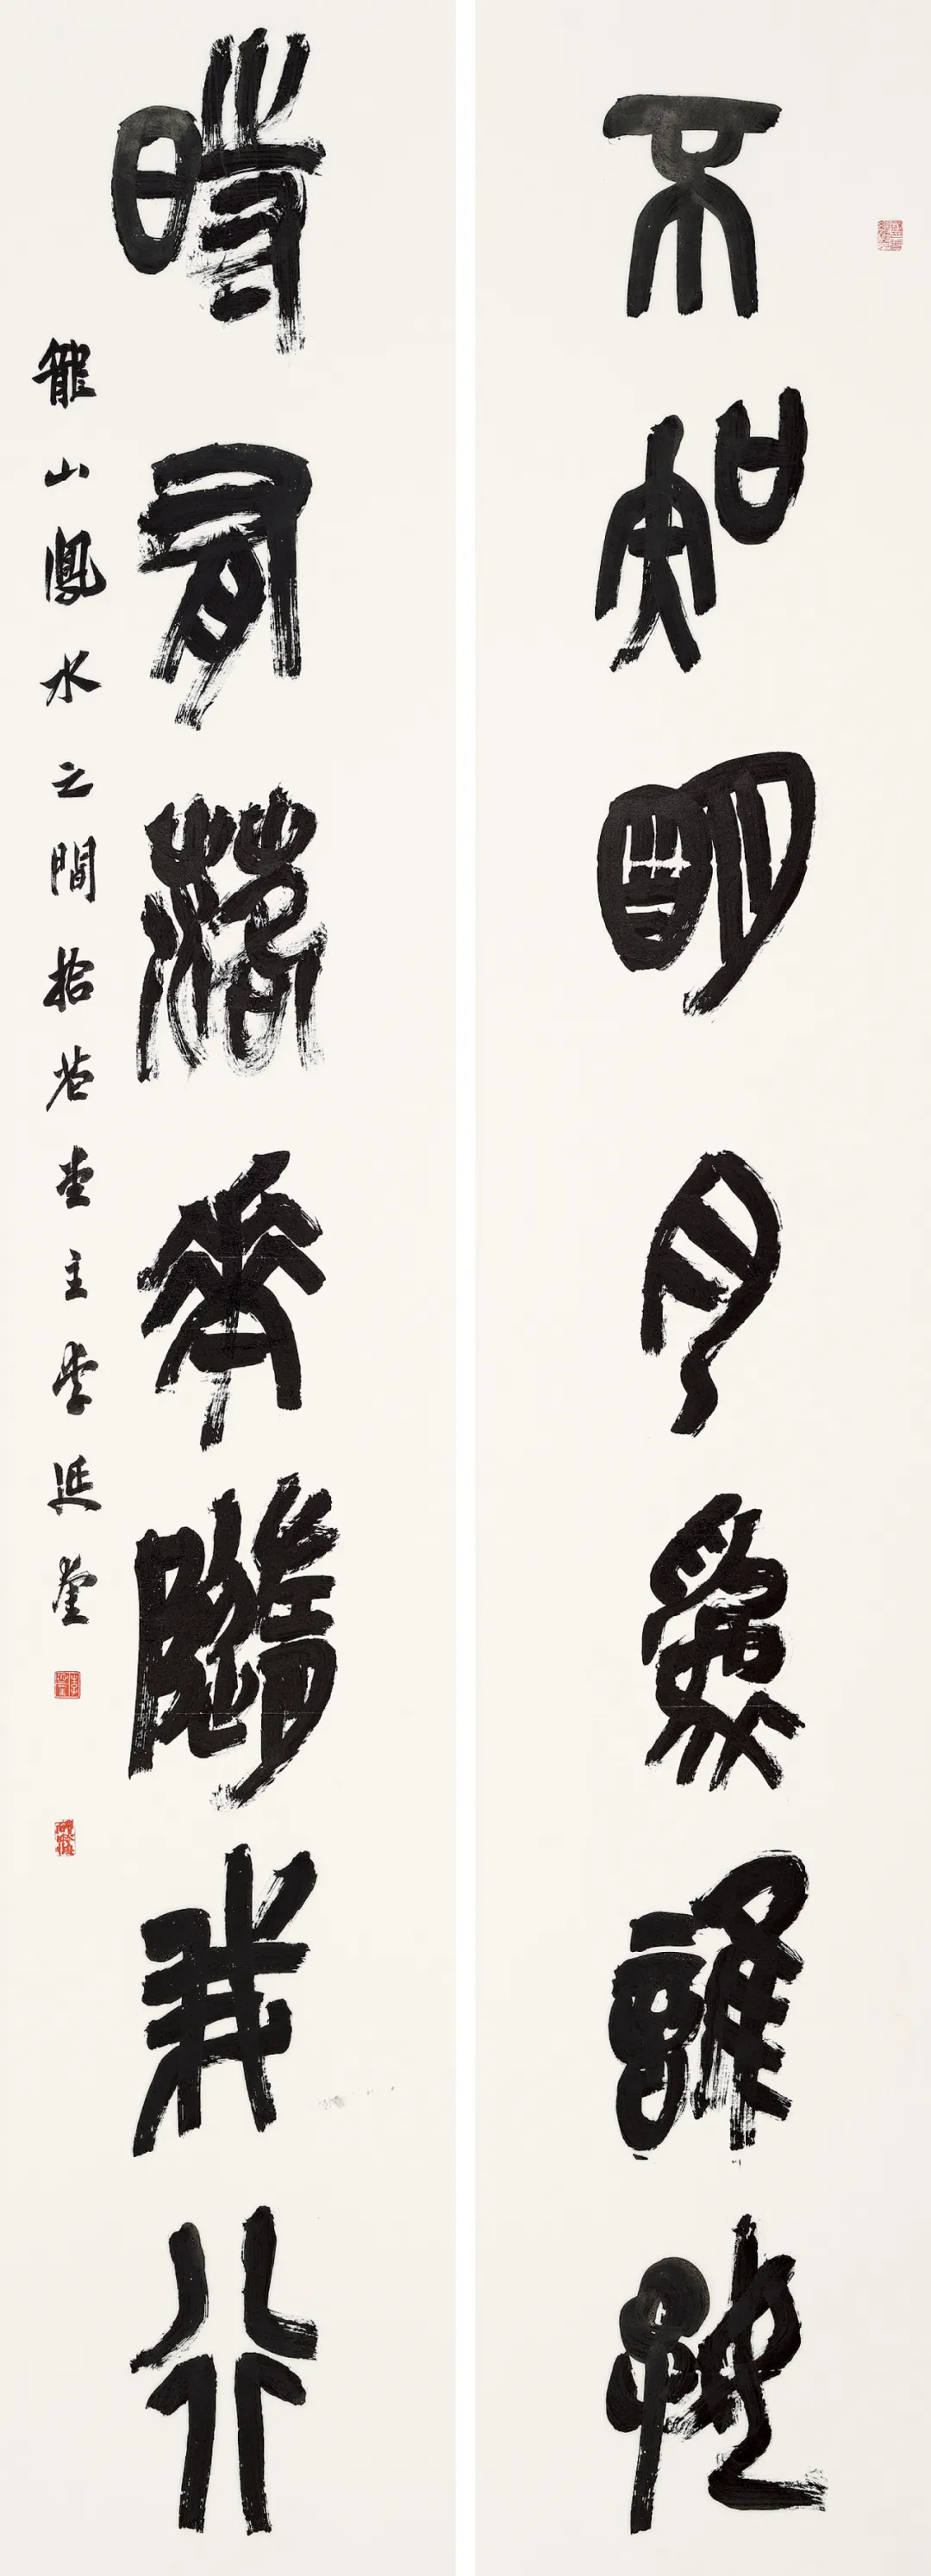 不知明月為誰好
時有落花隨我行
龍山鳳水之間拾芥堂主李延奎